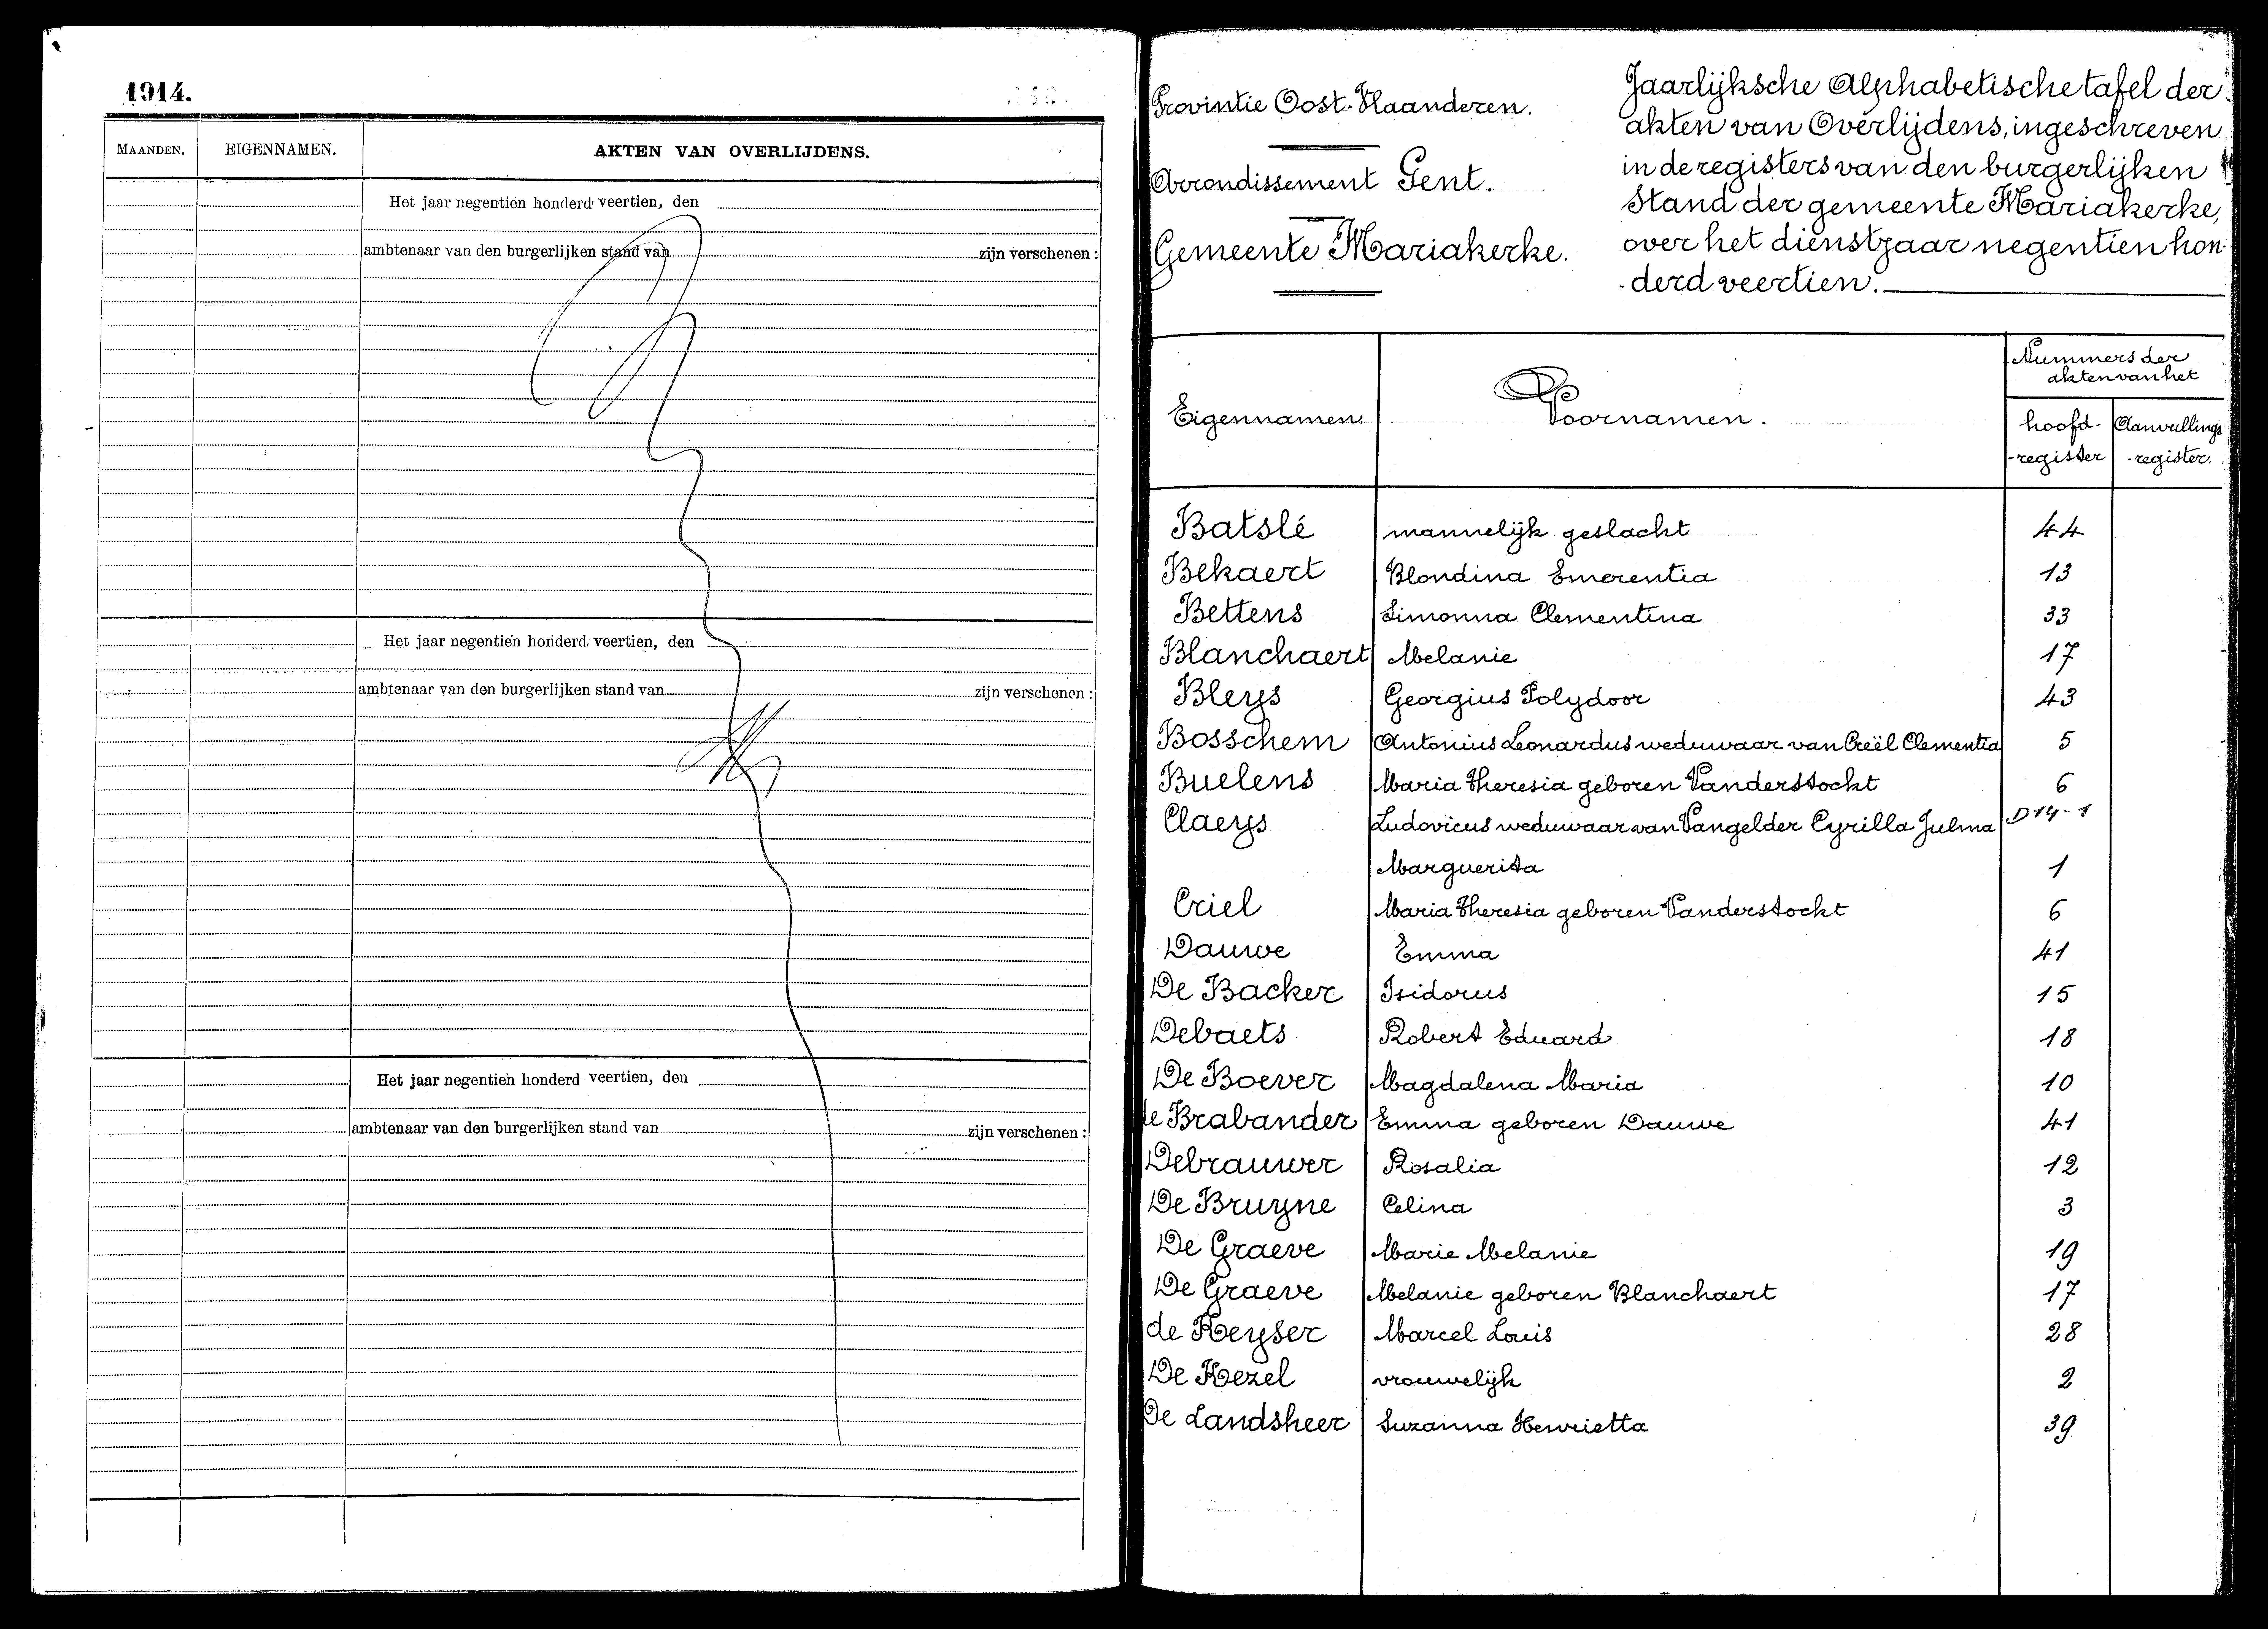 1914.
MAANDEN. EIGENNAMEN. AKTEN VAN OVERLIJDENS.
Het jaar negentien honderd veertien, den
ambtenaar van den burgerlijken stand van zijn verschenen :
Het jaar negentien honderd veertien, den
ambtenaar van den burgerlijken stand van zijn verschenen :
Het jaar negentien honderd veertien, den
ambtenaar van den burgerlijken stand van zijn verschenen :
Provintie Oost-Vlaanderen.
Arrondissement Gent.
Gemeente Mariakerke.
Jaarlijksche Alphabetische tafel der
akten van Overlijdens, ingeschreven
in de registers van den burgerlijken
Stand der gemeente Mariakerke,
over het dienstjaar negentien hon-
-derd veertien.
Eigennamen. Voornamen. Nummers der
akten van het
hoofd-
-register Aanvullings
-register.
Batslé mannelijk geslacht 44
Bekaert Blondina Emerentia 13
Bettens Simonna Clementina 33
Blanchaert Melanie 17
Bleys Georgius Polydoor 43
Bosschem Antonius Leonardus weduwaar van Creël Clementia 5
Buelens Maria Theresia geboren Vanderstockt 6
Claeys Ludovicus weduwaar van Vangelder Cyrilla Julma D14-1
Marguerita 1
Criel Maria Theresia geboren Vanderstockt 6
Dauwe Emma 41
De Backer Isidorus 15
Debaets Robert Eduard 18
De Boever Magdalena Maria 10
de Brabander Emma geboren Dauwe 41
Debrauwer Rosalia 12
De Bruyne Celina 3
De Graeve Marie Melanie 19
De Graeve Melanie geboren Blanchaert 17
de Keyser Marcel Louis 28
De Kezel vrouwelijk 2
De Landsheer Suzanna Henrietta 39